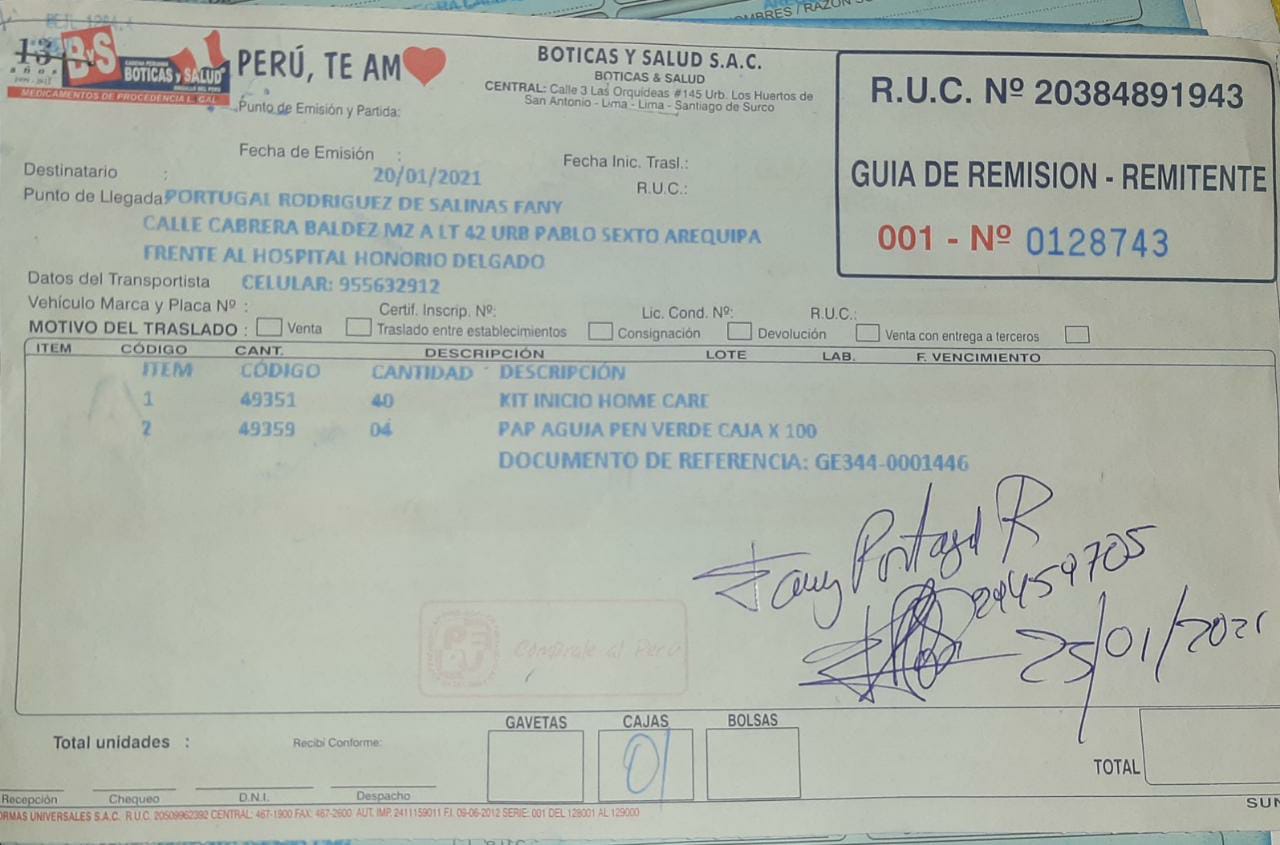 MBRES / RAZÓN
13 ByS
años
CADENA PERUANA
BOTICAS y SALUD
ORGULLO DEL PERÚ
MEDICAMENTOS DE PROCEDENCIA LEGAL
PERÚ, TE AM
Punto de Emisión y Partida:
BOTICAS Y SALUD S.A.C.
BOTICAS & SALUD
CENTRAL: Calle 3 Las Orquideas #145 Urb. Los Huertos de
San Antonio - Lima - Lima - Santiago de Surco
R.U.C. Nº 20384891943
GUIA DE REMISION - REMITENTE
001 - Nº 0128743
Fecha de Emisión :
20/01/2021
Fecha Inic. Trasl.:
Destinatario :
R.U.C.:
Punto de Llegada PORTUGAL RODRIGUEZ DE SALINAS FANY
CALLE CABRERA BALDEZ MZ A LT 42 URB PABLO SEXTO AREQUIPA
FRENTE AL HOSPITAL HONORIO DELGADO
Datos del Transportista CELULAR: 955632912
Vehículo Marca y Placa Nº : Certif. Inscrip. Nº: Lic. Cond. Nº: R.U.C.:
MOTIVO DEL TRASLADO : Venta Traslado entre establecimientos Consignación Devolución Venta con entrega a terceros
ITEM CÓDIGO CANT. DESCRIPCIÓN LOTE LAB. F. VENCIMIENTO
ITEM CÓDIGO CANTIDAD DESCRIPCIÓN
1 49351 40 KIT INICIO HOME CARE
2 49359 04 PAP AGUJA PEN VERDE CAJA X 100
DOCUMENTO DE REFERENCIA: GE344-0001446
Fany Portugal R
29459705
25/01/2021
Cómprale al Perú
GAVETAS CAJAS BOLSAS
01
Total unidades : Recibi Conforme:
TOTAL
Recepción Chequeo D.N.I. Despacho
SUN
ORMAS UNIVERSALES S.A.C. R.U.C. 20509962392 CENTRAL: 467-1900 FAX: 467-2600 AUT. IMP. 2411159011 F.I. 09-06-2012 SERIE: 001 DEL 128001 AL 129000